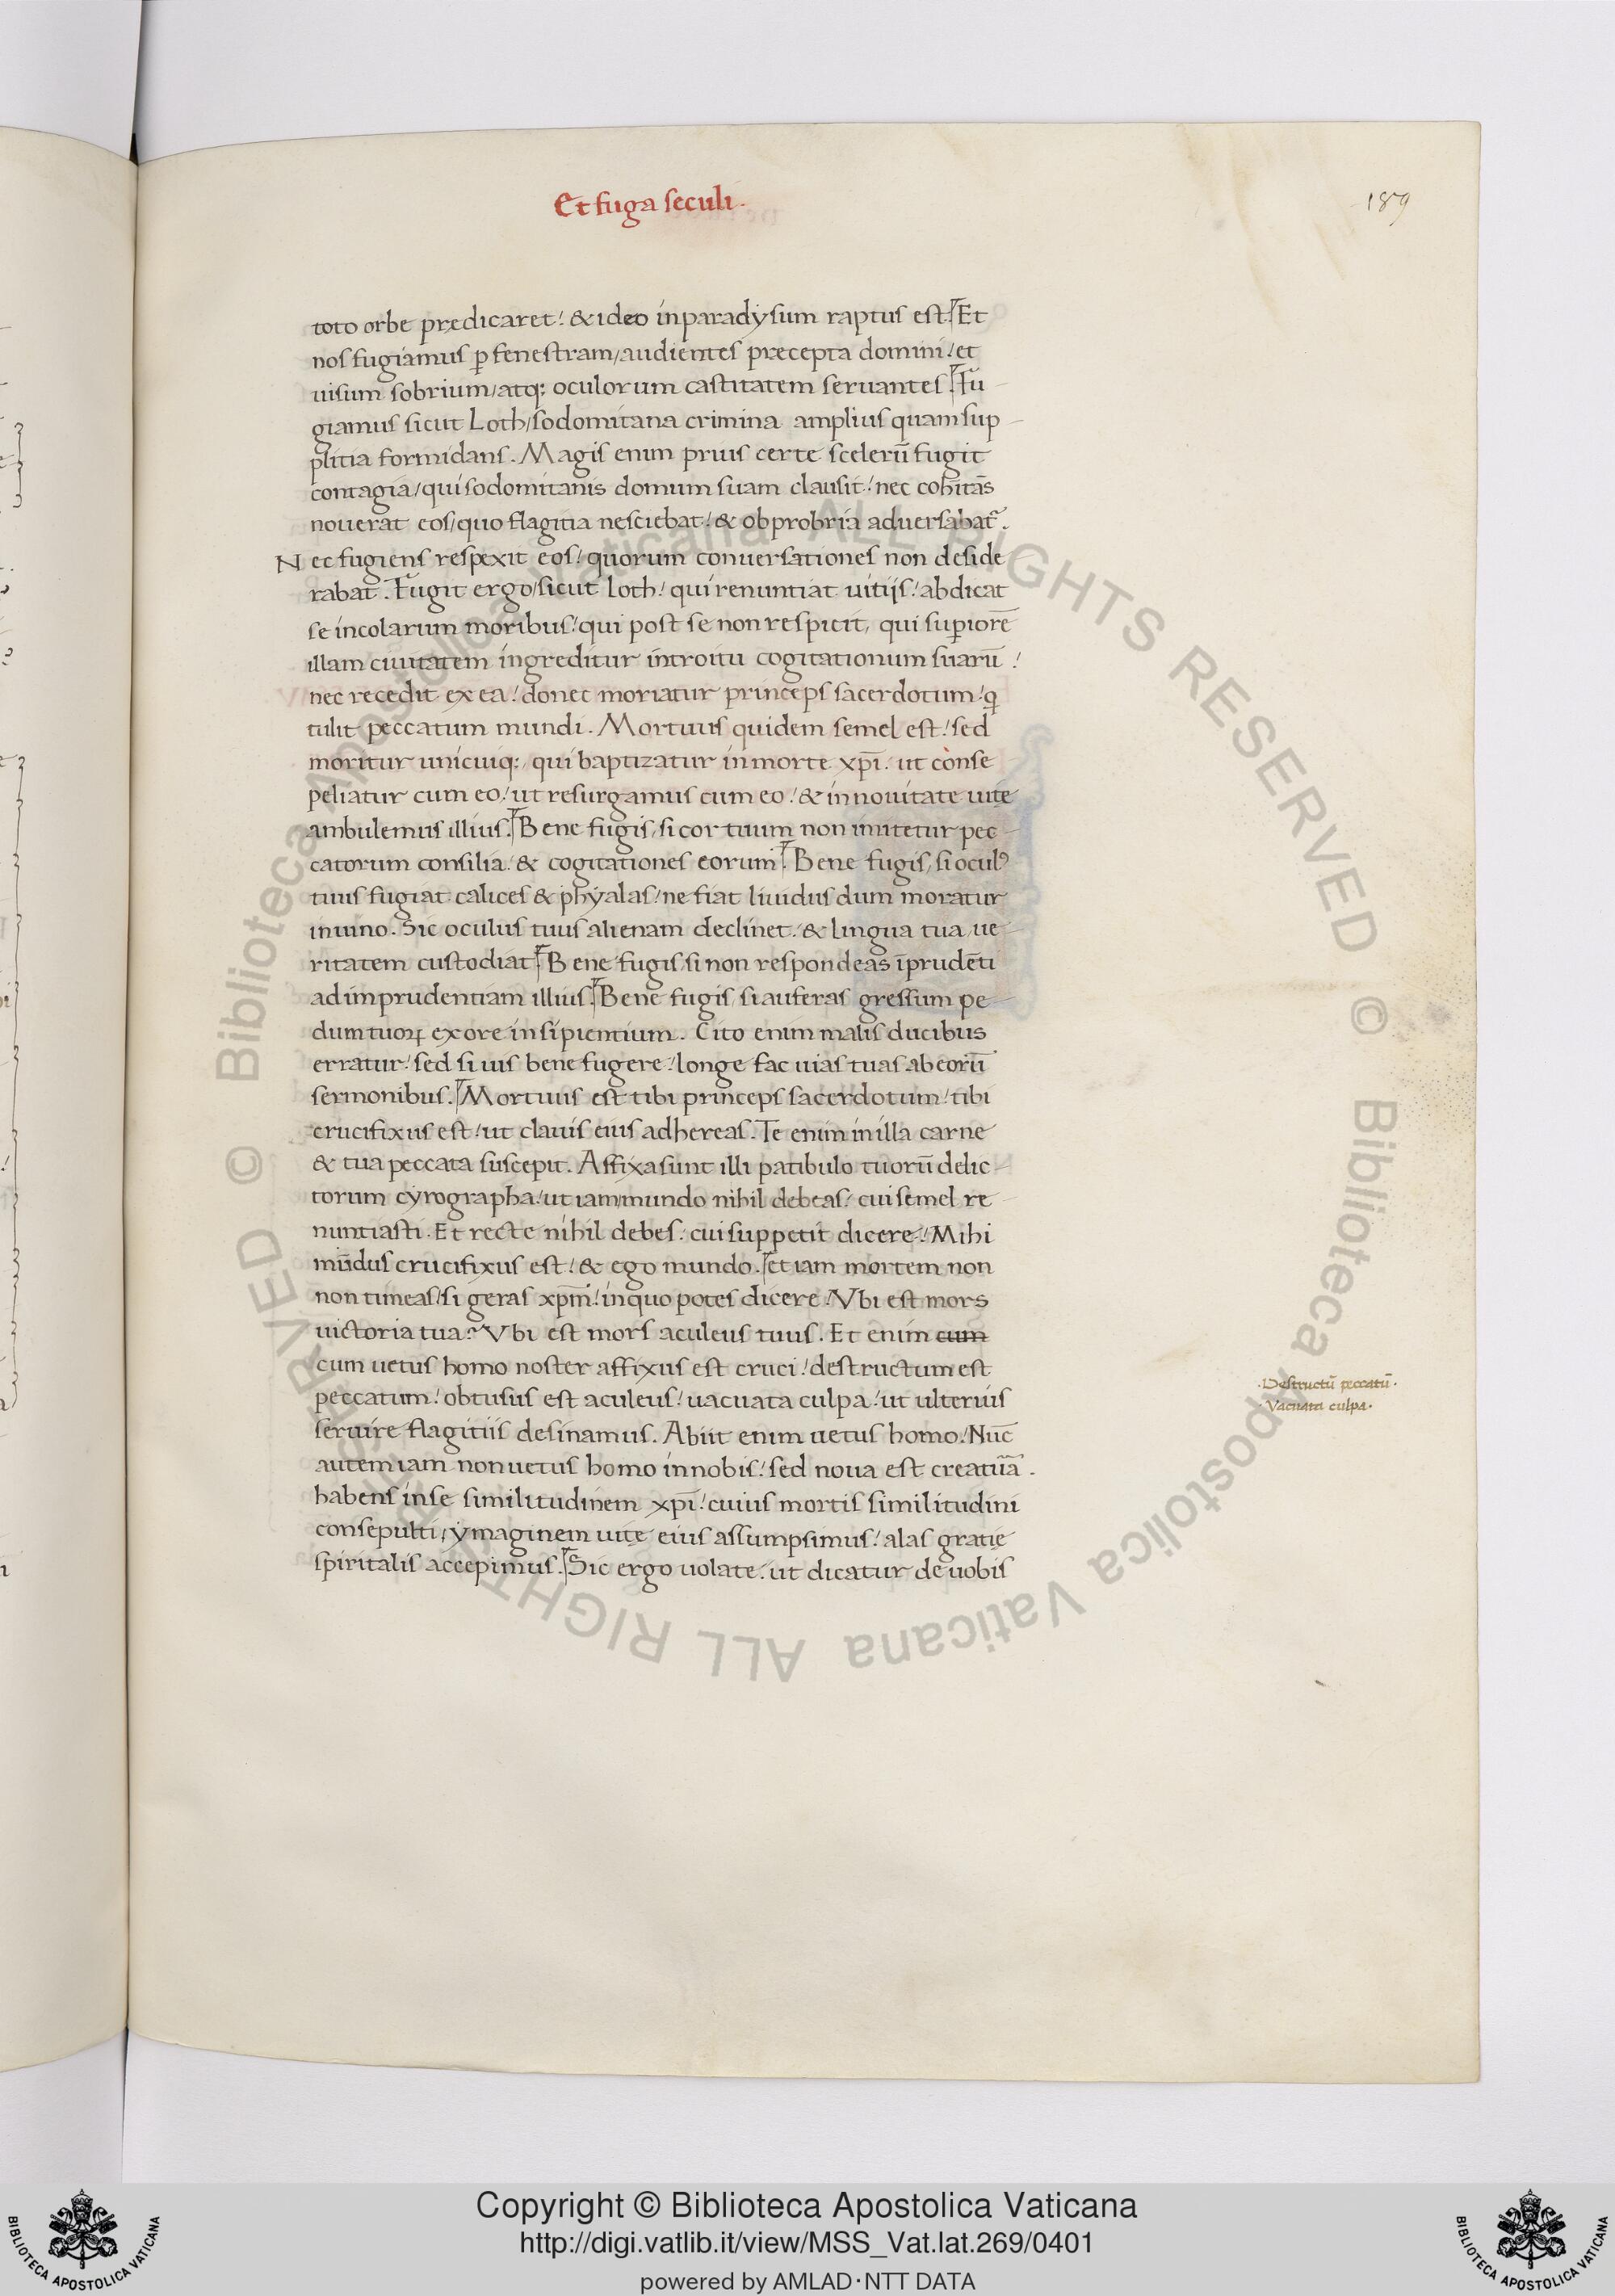 Et fuga seculi.
189
toto orbe predicaret! & ideo in paradysum raptus est. Et
nos fugiamus ꝑ fenestram/ audientes precepta domini! et
uisum sobrium/ atq: oculorum castitatem seruantes. Fu-
giamus sicut Loth/ sodomitana crimina amplius quam sup-
plitia formidans. Magis enim prius certe scelerū fugit
contagia/ qui sodomitanis domum suam clausit! nec cohītās
nouerat eos/ quo flagitia nesciebat! & obprobria aduersabat᷑.
Nec fugiens respexit eos! quorum conuersationes non deside
rabat. Fugit ergo/ sicut loth! qui renuntiat uitijs! abdicat
se incolarum moribus! qui post se non respicit, qui suꝑiorē
illam ciuitatem ingreditur introitu cogitationum suarū!
nec recedit ex ea! donec moriatur princeps sacerdotum! q̇
tulit peccatum mundi. Mortuus quidem semel est! sed
moritur unicuiq: qui baptizatur in morte xp̄i. ut conse
peliatur cum eo! ut resurgamus cum eo! & in nouitate uitę
ambulemus illius. Bene fugis, si cor tuum non imitetur pec-
catorum consilia. & cogitationes eorum. Bene fugis, si ocul᷒
tuus fugiat calices & phyalas! ne fiat liuidus dum moratur
in uino. Sic oculus tuus alienam declinet. & lingua tua ue-
ritatem custodiat. Bene fugis/ si non respondeas īprudēti
ad imprudentiam illius. Bene fugis, si auferas gressum pe-
dum tuoꝝ ex ore insipientium. Cito enim malis ducibus
erratur! sed si uis bene fugere! longe fac uias tuas ab eorū
sermonibus. Mortuus est tibi princeps sacerdotum! tibi
crucifixus est! ut clauis eius adhereas. Te enim in illa carne
& tua peccata suscepit. Affixa sunt illi patibulo tuorū delic-
torum cyrographa! ut iam mundo nihil debeas! cui semel re-
nuntiasti. Et recte nihil debes. cui suppetit dicere! Mihi
mūdus crucifixus est! & ego mundo. et iam mortem non
non timeas! si geras xp̄m! in quo potes dicere! Vbi est mors
uictoria tua? Vbi est mors aculeus tuus. Et enim cum
cum uetus homo noster affixus est cruci! destructum est
peccatum! obtusus est aculeus! uacuata culpa! ut ulterius
seruire flagitiis desinamus. Abiit enim uetus homo! Nūc
autem iam non uetus homo in nobis! sed noua est creatura.
habens in se similitudinem xp̄i! cuius mortis similitudini
consepulti, ymaginem uitę eius assumpsimus! alas gratię
spiritalis accepimus. Sic ergo uolate. ut dicatur de uobis
·Destructū peccatū·
·Vacuata culpa·
© Biblioteca Apostolica Vaticana ALL RIGHTS RESERVED
© Biblioteca Apostolica Vaticana ALL RIGHTS RESERVED
Copyright © Biblioteca Apostolica Vaticana
http://digi.vatlib.it/view/MSS_Vat.lat.269/0401
powered by AMLAD·NTT DATA
BIBLIOTECA APOSTOLICA VATICANA
BIBLIOTECA APOSTOLICA VATICANA